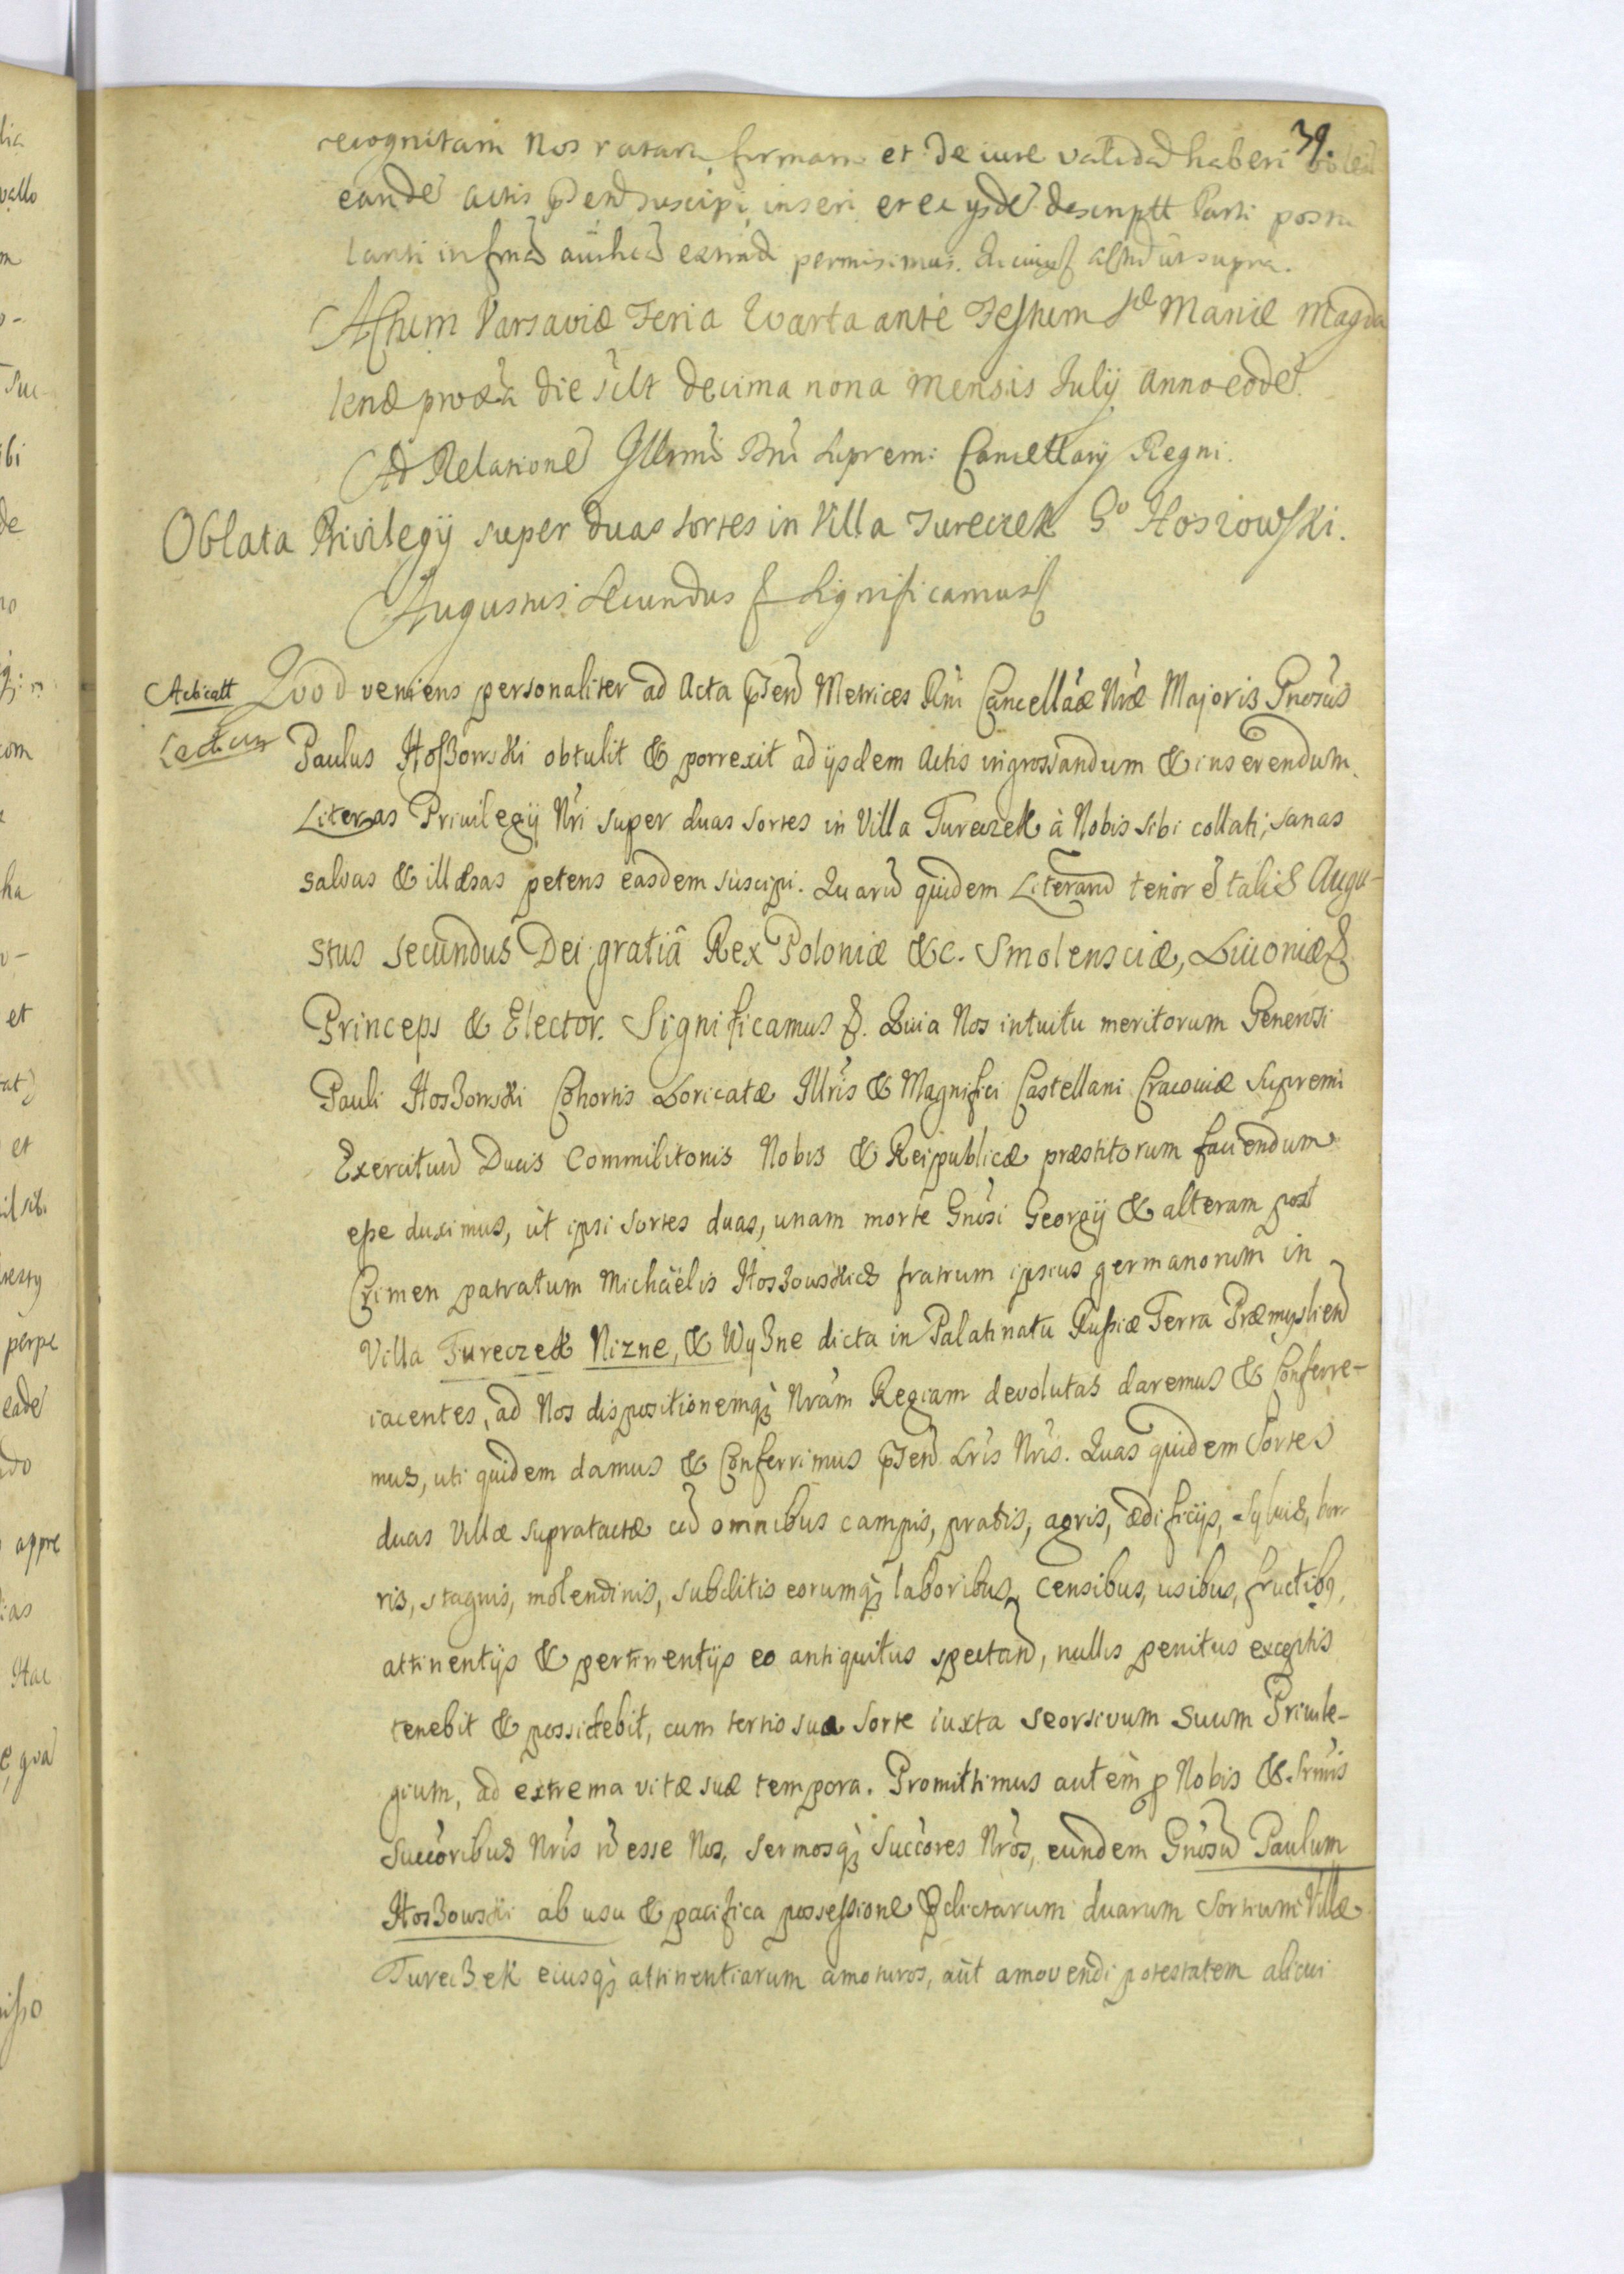 39.
recognitam Nos ratam firmam et de iure validã haberi volen
eandẽ actis p̃sen suscipi, inseri et ex ysdẽ descriptt Parti postu
lanti in formã authẽ extradi permisimus. In cuius & actũ ut supra.
Actum Varsaviæ Feria Quarta ante Festum Sæ Mariæ Magda
lenæ proxa die scilt decima nona mensis July Anno eodẽ.
Ad Relationẽ Illrmi Dni Supremi Cancellarij Regni.
Oblata Privilegij super duas sortes in Villa Tureczek Go Hoszowski.
Augustus Secundus & Significamus &
Acticatt Quod veniens personaliter ad Acta p̃sen Metrices Rni Cancellãe Nræ Majoris Gnosus
Lectum Paulus Hoszowski obtulit & porrexit ad ysdem Actis ingrossandum & inserendum
Literas Privilegij Nri super duas sortes in Villa Tureczek à Nobis sibi collati, sanas
salvas & illæsas petens easdem suscipi. Quarũ quidem Literarũ tenor ẽ talis Augu-
stus secundus Dei gratiâ Rex Poloniæ &c. Smolensciæ, Livoniæ &
Princeps & Elector. Significamus &. Quia Nos intuitu meritorum Generosi
Pauli Hoszowski Cohortis Loricatæ Illris & Magnifici Castellani Cracoviæ Supremi
Exercituũ Ducis Commilitonis Nobis & Reipublicæ præstitorum faciendum
esse duximus, ut ipsi sortes duas, unam morte Gnosi Georgij & alteram post
Crimen patratum Michaëlis Hoszowskich fratrum ipsius germanorum in
Villa Tureczek Nizne, & Wyszne dicta in Palatinatu Russiæ Terra Præmyslien
iacentes, ad Nos dispositionemq; Nram Regiam devolutas daremus & Conferre-
mus, uti quidem damus & Conferrimus p̃sen Lris Nris. Quas quidem Sortes
duas Villæ supratactæ cũ omnibus campis, pratis, agris, ædificijs, Sylvis, hor
ris, stagnis, molendinis, subditis eorumq; laboribus, Censibus, usibus, fructib9,
attinentijs & pertinentijs eo antiquitus spectañ, nullis penitus exceptis
tenebit & possidebit, cum tertio sua Sorte iuxta seorsivum suum Privile-
gium, ad extrema vitæ suæ tempora. Promittimus autem p Nobis & Srmis
Succoribus Nris ñ esse Nos, sermosq; Succores Nros, eundem Gnosũ Paulum
Hoszowski ab usu & pacifica possessione p̃dictarum duarum Sortium Villæ
Tureczek eiusq; attinentiarum amoturos, aut amovendi potestatem alicui